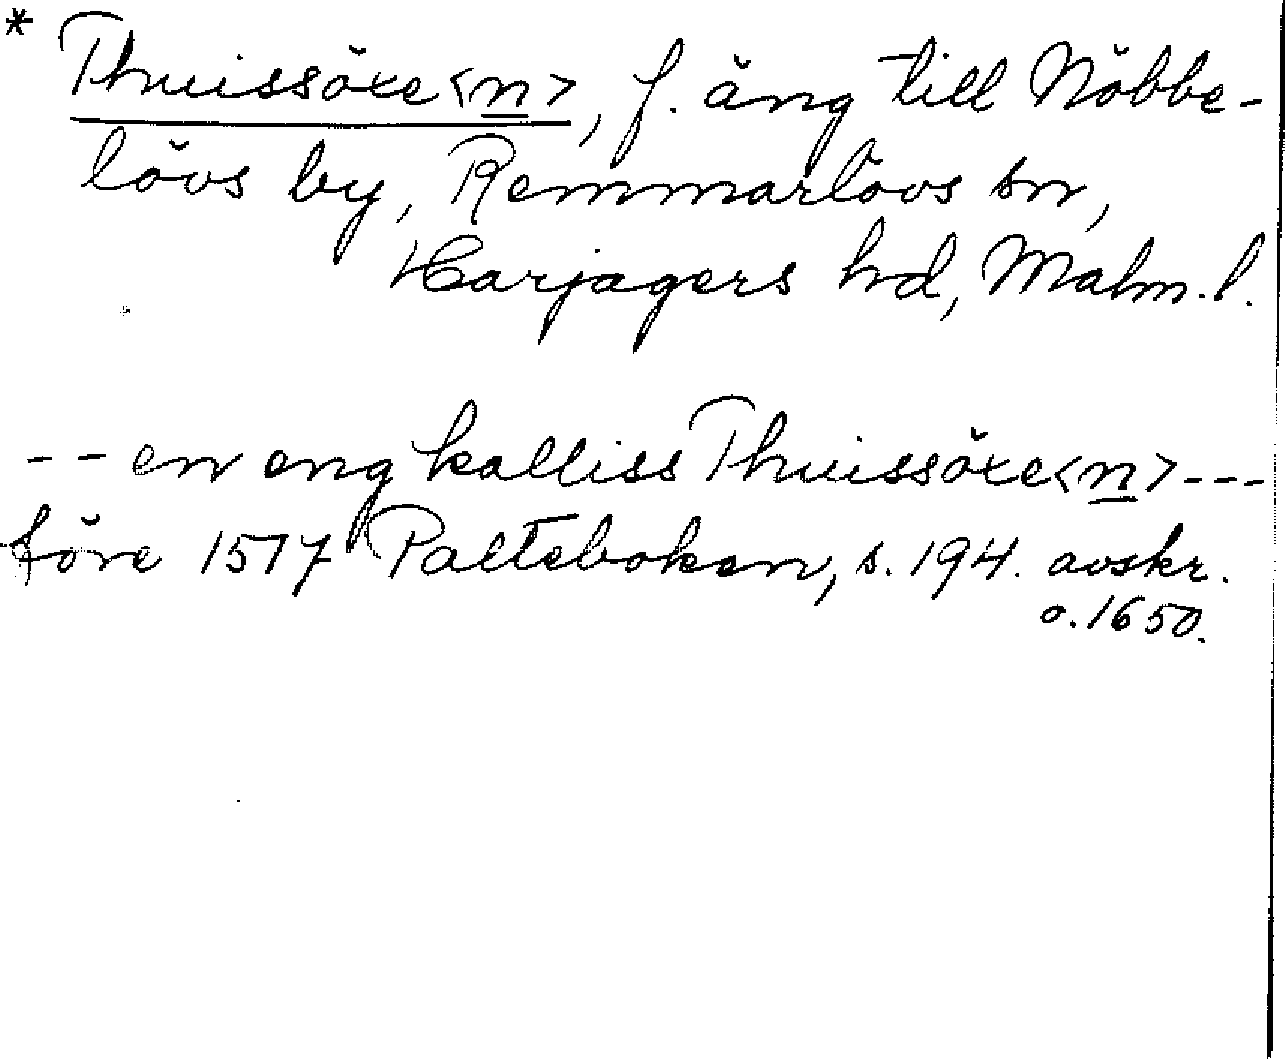 * Thuissöxe<n>, f. äng till Nöbbe-
lövs by, Remmarlövs sn,
Harjagers hd, Malm. l.
-- en eng kalliss Thuissöxe<n> ---
före 1517 Palteboken, s. 194. avskr.
o. 1650.